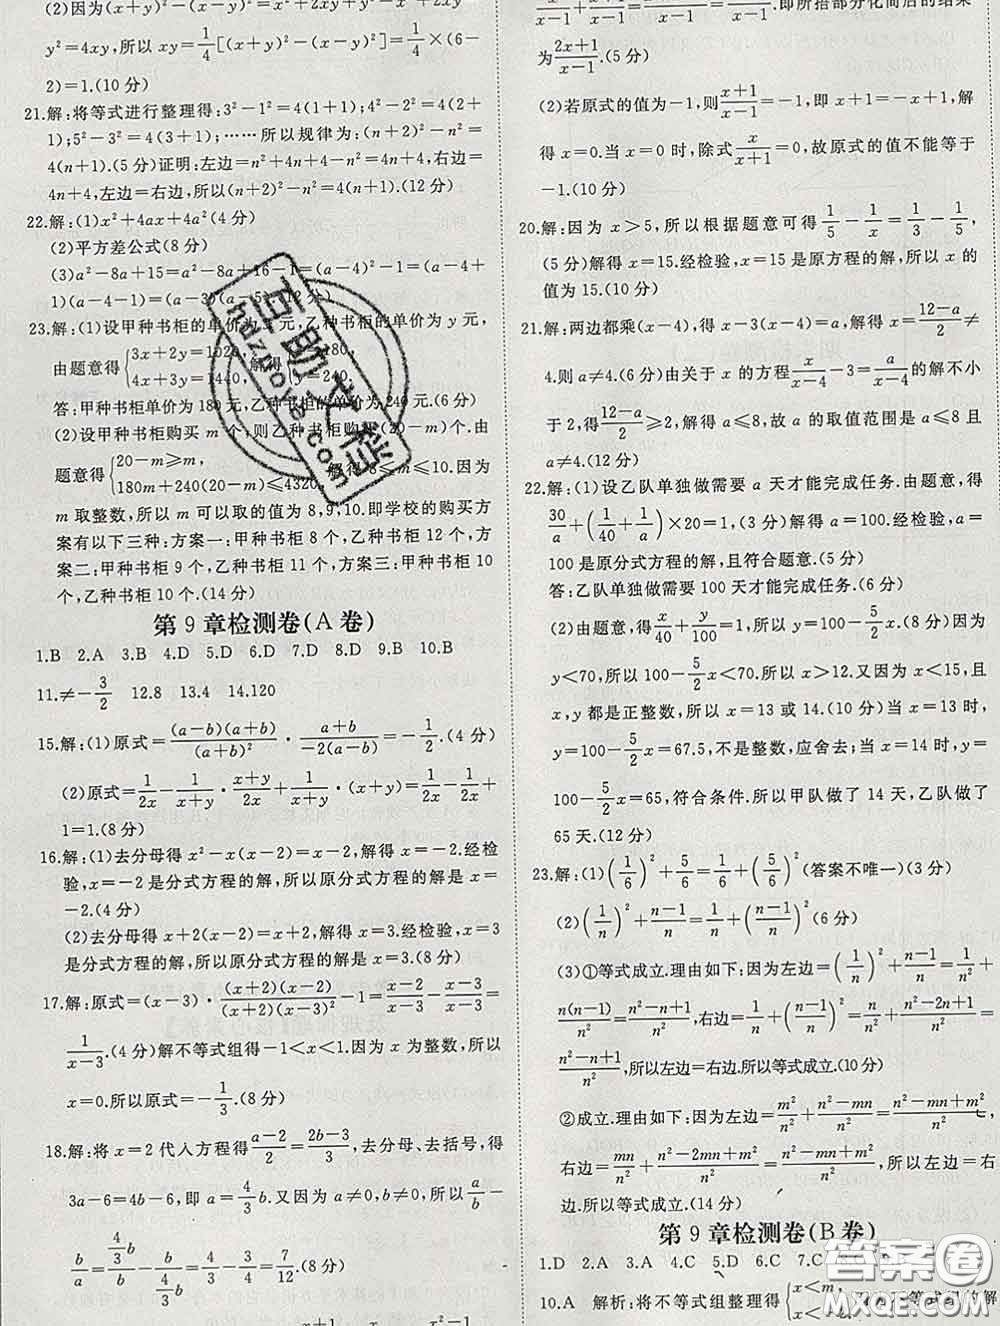 (2)因为(x+y)²-(x-y)²=x²+2xy+y²-x²+2xy-
y²=4xy,所以 xy=1/4[(x+y)²-(x-y)²]=1/4×(6-
2)=1.(10分)
21.解:将等式进行整理得:3²-1²=4(1+1);4²-2²=4(2+
1);5²-3²=4(3+1);……所以规律为:(n+2)²-n²=
4(n+1).(5分)证明:左边=n²+4n+4-n²=4n+4,右边=
4n+4,左边=右边,所以(n+2)²-n²=4(n+1).(12分)
22.解:(1)x²+4ax+4a²(4分)
(2)平方差公式(8分)
(3)a²-8a+15=a²-8a+16-1=(a-4)²-1=(a-4+
1)(a-4-1)=(a-3)(a-5).(12分)
23.解:(1)设甲种书柜的单价为x元,乙种书柜的单价为y元,
由题意得{3x+2y=1020, 4x+3y=1440, 解得{x=180, y=240.
答:甲种书柜单价为180元,乙种书柜的单价为240元.(6分)
(2)设甲种书柜购买m个,则乙种书柜购买(20-m)个.由
题意得{20-m≥m, 180m+240(20-m)≤4320, 解得8≤m≤10.因为
m取整数,所以m可以取的值为8,9,10.即学校的购买方
案有以下三种:方案一:甲种书柜8个,乙种书柜12个,方
案二:甲种书柜9个,乙种书柜11个,方案三:甲种书柜10
个,乙种书柜10个.(14分)
第9章检测卷(A卷)
1.B 2.A 3.B 4.D 5.D 6.D 7.D 8.D 9.B 10.B
11.≠-3/2 12.8 13.4 14.120
15.解:(1)原式=(a-b)(a+b)/(a+b)²·(a+b)/-2(a-b)=-1/2.(4分)
(2)原式=1/2x-1/(x+y)·(x+y)/2x+1/(x+y)·(x+y)=1/2x-1/2x+
1=1.(8分)
16.解:(1)去分母得x²-x(x-2)=x-2,解得x=-2.经检
验,x=-2是分式方程的解,所以原分式方程的解是x=
-2.(4分)
(2)去分母得x+2(x-2)=x+2,解得x=3.经检验,x=3
是分式方程的解,所以原分式方程的解是x=3.(8分)
17.解:原式=(x-3)·(x+2)(x-2)/(x+2)(x-3)²-1=(x-2)/(x-3)-(x-3)/(x-3)=
1/(x-3).(4分)解不等式组得-1<x<1.因为x为整数,所以
x=0.所以原式=-1/3.(8分)
18.解:将x=2代入方程得(a-2)/2=(2b-3)/3,去分母、去括号,得
3a-6=4b-6,即a=4/3b.又因为a≠0,b≠0,所以a/b-
b/a=(4/3b)/b-b/(4/3b)=4/3-3/4=7/12.(8分)
x/(x-1)+(x+1)/(x-1)=(2x+1)/(x-1).即所捂部分化简后的结果
为(2x+1)/(x-1).(5分)
(2)若原式的值为-1,则(x+1)/(x-1)=-1,即x+1=-x+1,解
得x=0.当x=0时,除式x/(x+1)=0,故原式的值不能等于
-1.(10分)
20.解:因为x>5,所以根据题意可得1/5-1/x=1/3-1/5,
(5分)解得x=15.经检验,x=15是原方程的解,所以x的
值为15.(10分)
21.解:两边都乘(x-4),得x-3(x-4)=a,解得x=(12-a)/2≠
4.则a≠4.(6分)由关于x的方程x/(x-4)-3=a/(x-4)的解不小
于2,得(12-a)/2≥2,解得a≤8,故a的取值范围是a≤8且
a≠4.(12分)
22.解:(1)设乙队单独做需要a天才能完成任务.由题意,得
30/a+(1/40+1/a)×20=1,(3分)解得a=100.经检验,a=
100是原分式方程的解,且符合题意.(5分)
答:乙队单独做需要100天才能完成任务.(6分)
(2)由题意,得x/40+y/100=1,所以y=100-5/2x.(8分)因为
y<70,所以100-5/2x<70.所以x>12.又因为x<15,且
x,y都是正整数,所以x=13或14.(10分)当x=13时,
y=100-5/2x=67.5,不是整数,应舍去;当x=14时,y=
100-5/2x=65,符合条件.所以甲队做了14天,乙队做了
65天.(12分)
23.解:(1)(1/6)²+5/6=1/6+(5/6)²(答案不唯一)(3分)
(2)(1/n)²+(n-1)/n=1/n+((n-1)/n)²(6分)
(3)①等式成立.理由如下:因为左边=(1/n)²+(n-1)/n=1/n²+
n(n-1)/n²=(n²-n+1)/n²,右边=1/n+((n-1)/n)²=n/n²+(n²-2n+1)/n²=
(n²-n+1)/n²,所以左边=右边.所以等式成立.(10分)
②成立.理由如下:因为左边=m²/n²+(n²-mn)/n²=(n²-mn+m²)/n²,
右边=mn/n²+(n²-2mn+m²)/n²=(n²-mn+m²)/n²,所以左边=右
边.所以等式成立.(14分)
第9章检测卷(B卷)
1.D 2.A 3.A 4.C 5.D 6.C 7.C
10.A 解析:将不等式组整理得{x<m,
互助文档
huzhoye.com
答案圈
MXQE.COM